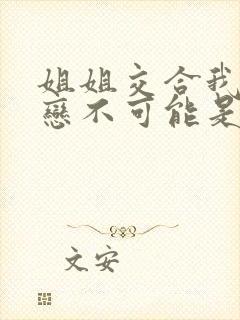 姐姐交合我
戀不可能是
文安